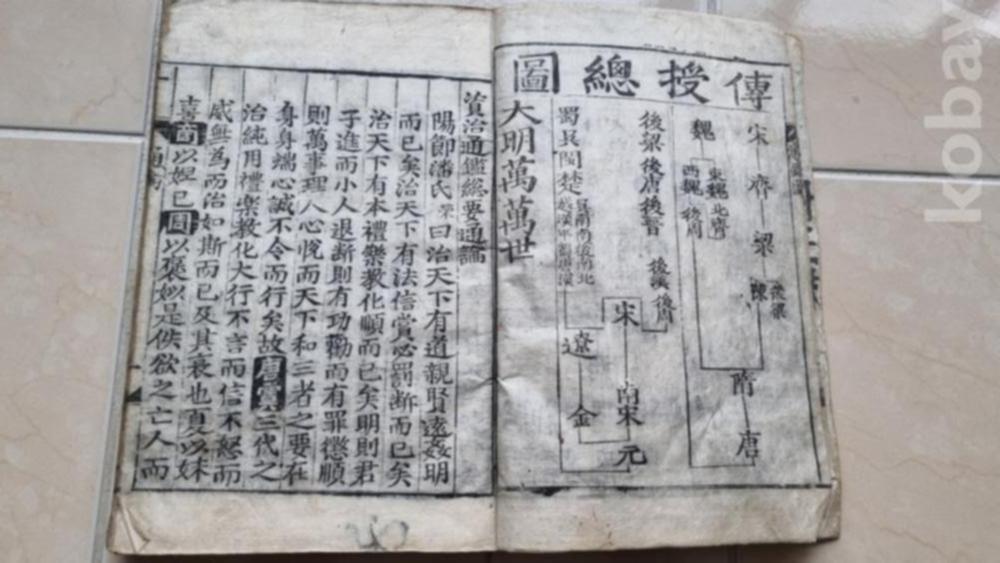 傳授總圖
宋 齊 梁 陳 後梁
隋 唐
魏 東魏 北齊
西魏 後周
後梁 後唐 後晉 後漢 後周
宋 南宋 元
蜀吳閩楚
遼 金
大明萬萬世
資治通鑑總要通論
陽節潘氏榮曰治天下有道親賢遠姦明
而已矣治天下有法信賞必罰斷而已矣
治天下有本禮樂教化順而已矣明則君
子進而小人退斷則有功勸而有罪懲順
則萬事理人心悅而天下和三者之要在
身身端心誠不令而行矣故唐虞三代之
治純用禮樂教化大行不言而信不怒而
威無為而治如斯而已及其衰也夏以妹
喜商以妲己周以褒姒是佚欲之亡人而
kobay